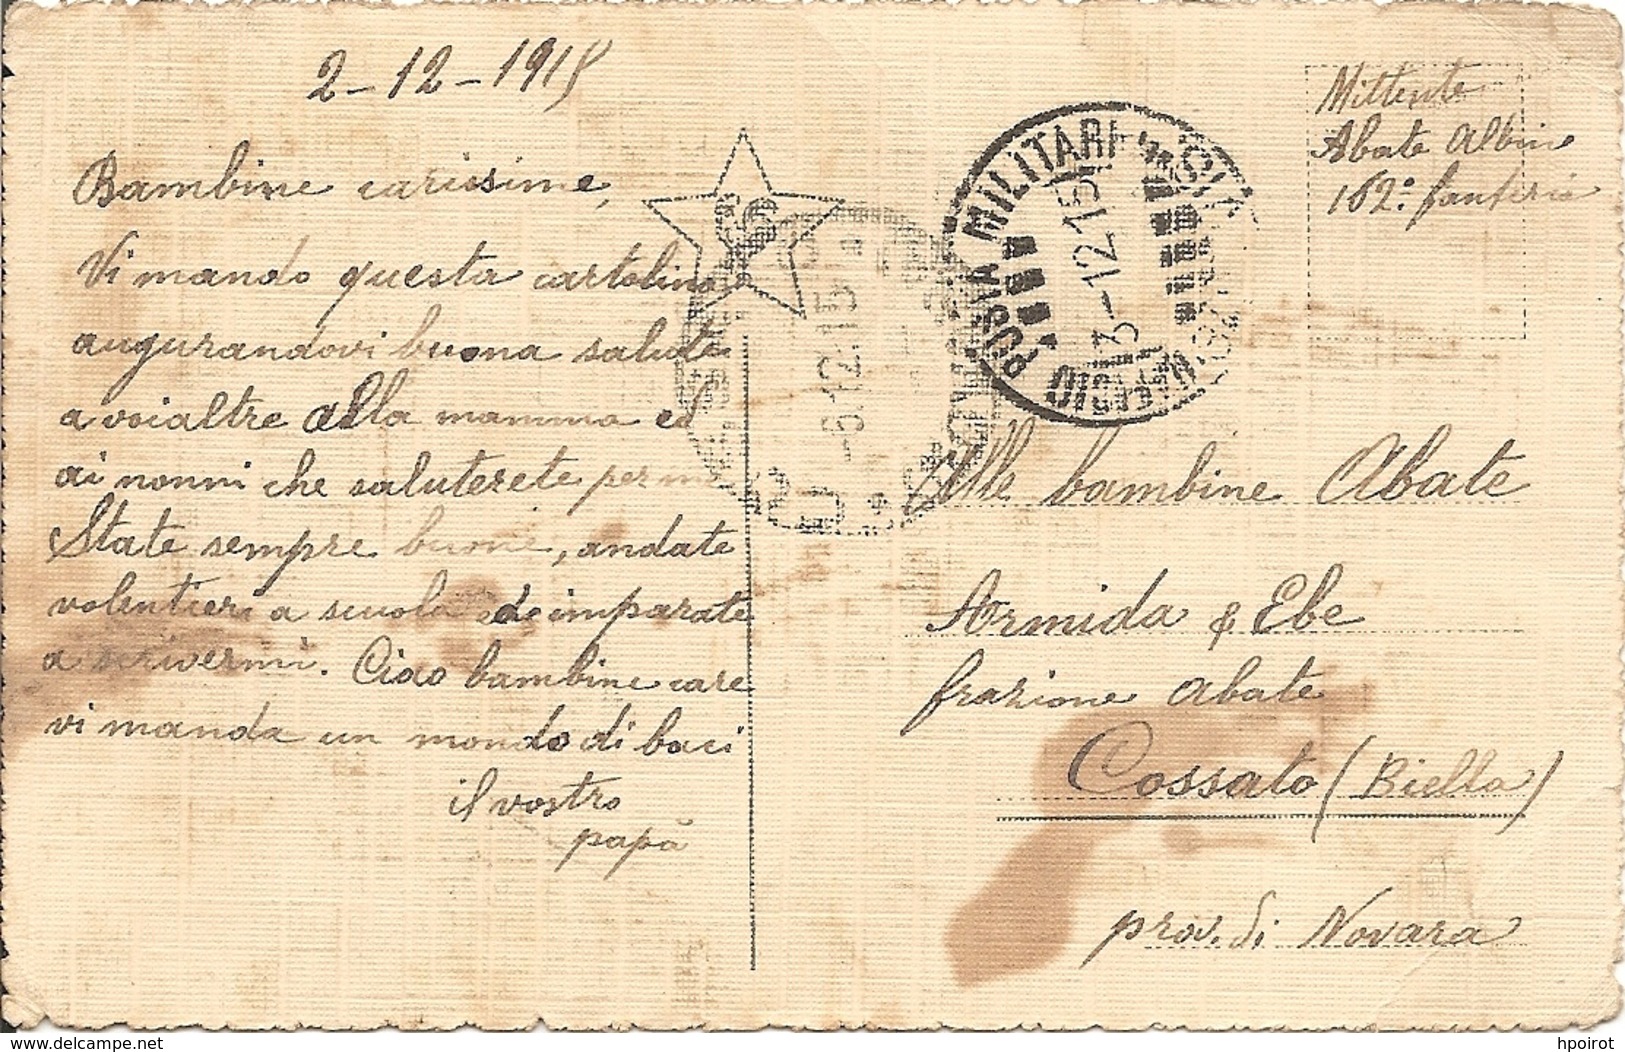 2-12-1915
Bambine carissime,
Vi mando questa cartolina
augurandovi buona salute
a voialtre alla mamma ed
ai nonni che saluterete per me
State sempre buone, andate
volentieri a scuola ed imparate
a scrivermi. Ciao bambine care
vi manda un mondo di baci
il vostro
papà
POSTA MILITARE
3-12 15
-6.12.15
Mittente
Abate Albino
162° fanteria
Alle bambine Abate
Armida & Ebe
frazione Abate
Cossato (Biella)
prov. di Novara
delcampe.net
hpoirot